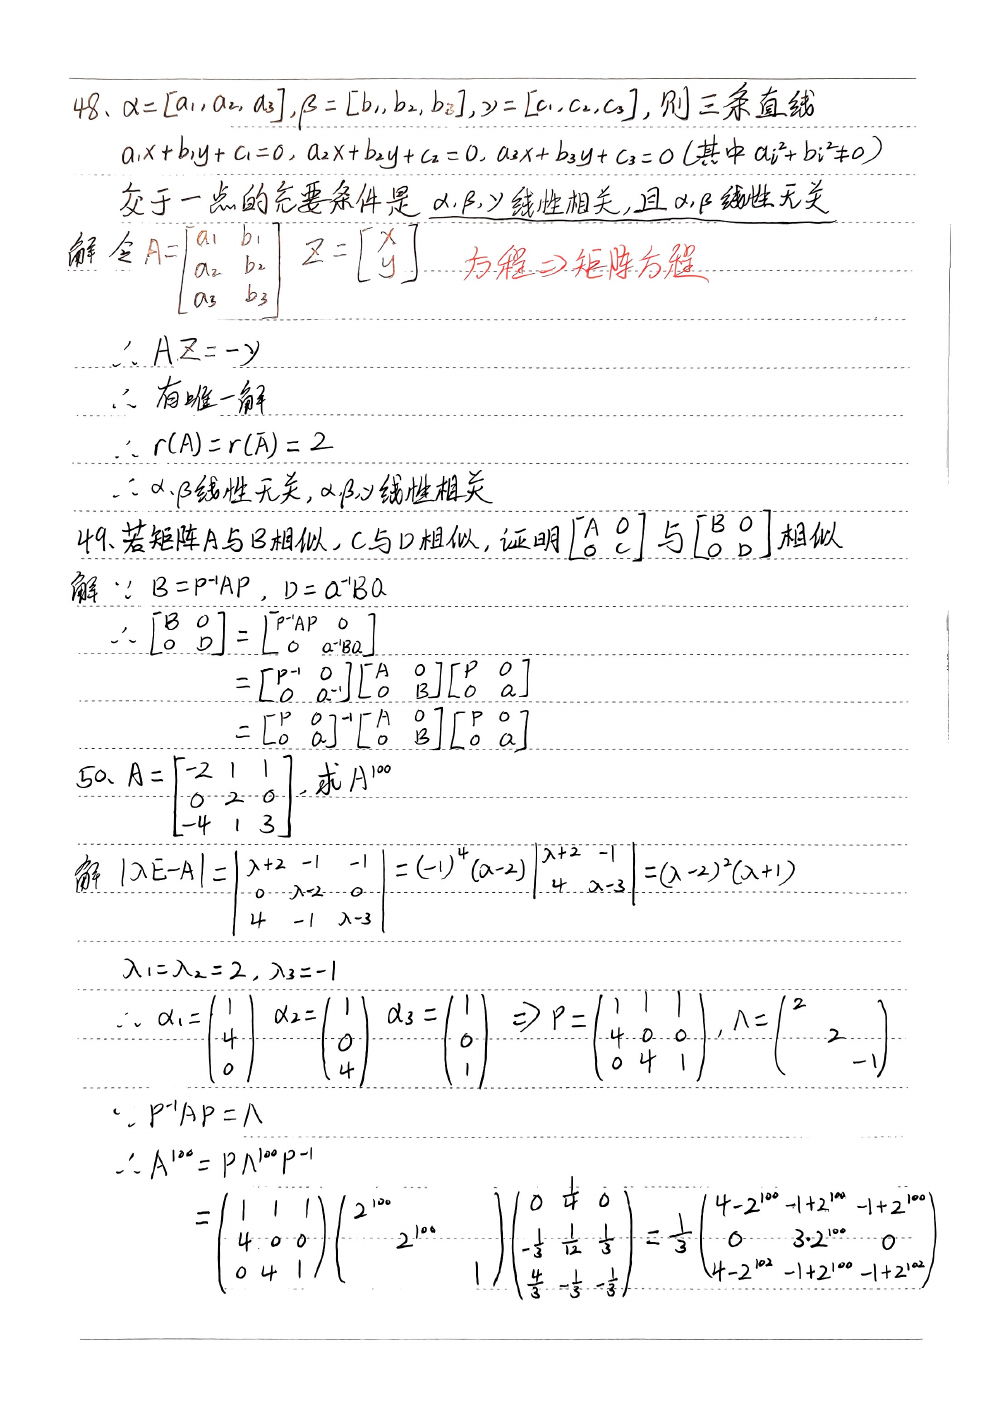 48、α=[a₁,a₂,a₃],β=[b₁,b₂,b₃],γ=[c₁,c₂,c₃],则三条直线
a₁x+b₁y+c₁=0,a₂x+b₂y+c₂=0,a₃x+b₃y+c₃=0(其中aᵢ²+bᵢ²≠0)
交于一点的充要条件是 α,β,γ线性相关,且α,β线性无关
解 令A=[a₁ b₁; a₂ b₂; a₃ b₃] Z=[x; y] 方程⇒矩阵方程
∴ AZ=-γ
∴ 有唯一解
∴ r(A)=r(Ā)=2
∴ α,β线性无关,α,β,γ线性相关
49、若矩阵A与B相似,C与D相似,证明[A 0; 0 C]与[B 0; 0 D]相似
解 ∵ B=P⁻¹AP, D=Q⁻¹BQ
∴ [B 0; 0 D]=[P⁻¹AP 0; 0 Q⁻¹BQ]
=[P⁻¹ 0; 0 Q⁻¹][A 0; 0 B][P 0; 0 Q]
=[P 0; 0 Q]⁻¹[A 0; 0 B][P 0; 0 Q]
50、A=[-2 1 1; 0 2 0; -4 1 3],求A¹⁰⁰
解 |λE-A|=|λ+2 -1 -1; 0 λ-2 0; 4 -1 λ-3|=(-1)⁴(λ-2)|λ+2 -1; 4 λ-3|=(λ-2)²(λ+1)
λ₁=λ₂=2,λ₃=-1
∴ α₁=(1; 4; 0) α₂=(1; 0; 4) α₃=(1; 0; 1) ⇒P=(1 1 1; 4 0 0; 0 4 1),Λ=(2; 2; -1)
∵ P⁻¹AP=Λ
∴ A¹⁰⁰=PΛ¹⁰⁰P⁻¹
=(1 1 1; 4 0 0; 0 4 1)(2¹⁰⁰; 2¹⁰⁰; 1)(0 1/4 0; -1/3 1/12 1/3; 4/3 -1/3 -1/3)=1/3(4-2¹⁰⁰ -1+2¹⁰⁰ -1+2¹⁰⁰; 0 3·2¹⁰⁰ 0; 4-2¹⁰² -1+2¹⁰⁰ -1+2¹⁰²)